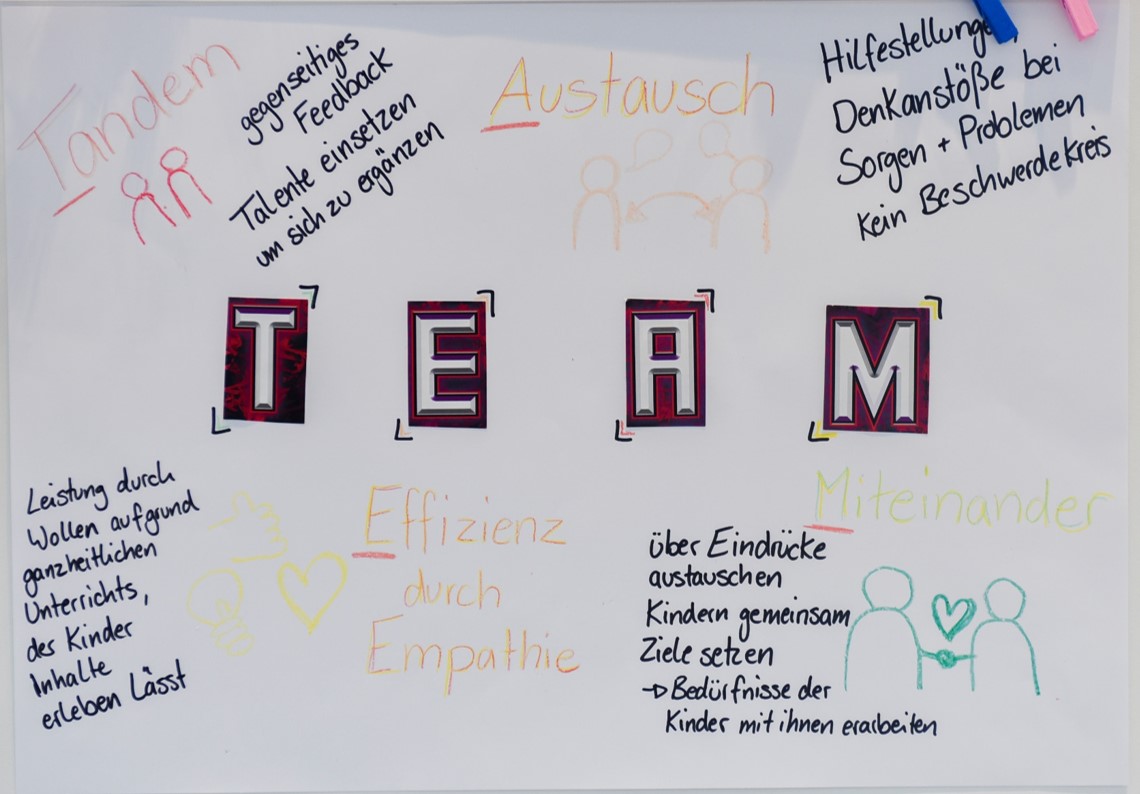 Tandem
gegenseitiges
Feedback
Talente einsetzen
um sich zu ergänzen
Austausch
Hilfestellungen,
Denkanstöße bei
Sorgen + Problemen
kein Beschwerdekreis
T E A M
Leistung durch
Wollen aufgrund
ganzheitlichen
Unterrichts,
des Kinder
Inhalte
erleben Lässt
Effizienz
durch
Empathie
Miteinander
über Eindrücke
austauschen
Kindern gemeinsam
Ziele setzen
→ Bedürfnisse der
Kinder mit ihnen erarbeiten